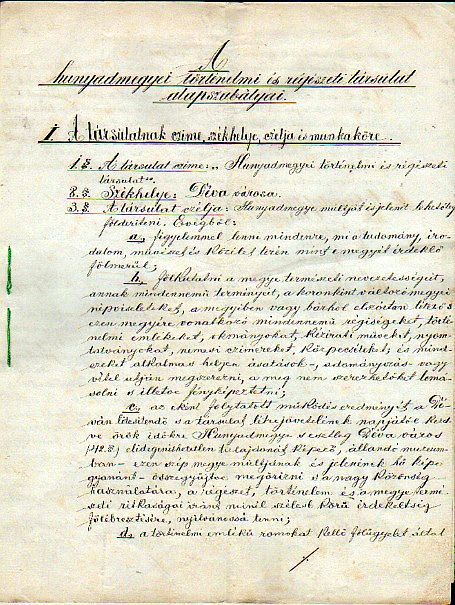 A
hunyadmegyei történelmi és régészeti társulat
alapszabályai.
I. A társulatnak czíme, székhelye, czélja és munkaköre.
1. §. A társulat czíme: „Hunyadmegyei történelmi és régészeti
társulat".
2. §. Székhelye: Déva városa.
3. §. A társulat czélja: Hunyadmegye múltját és jelenét lehetőleg
földeríteni. Evégből:
a, figyelemmel lenni mindenre, mi a tudomány, iro-
dalom, művészet és közélet terén minket megyét érdeklő
fölmerül;
b, fölkutatni a megye természeti nevezetességeit,
annak mindennemű terményeit, a koronkint változó megyei
népviseleteket, a megyében vagy bárhol elszórtan létező s
ezen megyére vonatkozó mindennemű régiségeket, törté-
nelmi emlékeket, okmányokat, kézirati műveket, nyom-
tatványokat, nemesi czímereket, közpecséteket; és mind-
ezeket alkalmas helyen ásatások-, adományozás- vagy
vétel útján megszerezni, a meg nem szerezhetőket lema-
solni s illetve fényképeztetni;
c, az ekint folytatott működés eredményét, a Dé-
ván létesítendő s a társulat létrejövetelének napjától kezd-
ve örök időkre Hunyadmegye s esetleg Déva város
(42. §.) elidegeníthetlen tulajdonát képező, állandó muzeum-
ban - ezen szép megye múltjának és jelenének hű képe
gyanánt - összegyűjtve megőrizni s a nagy közönség
használatára, a régészet, történelem és a megye termé-
szeti ritkaságai iránt minél szélesb körű érdekeltség
fölébresztésére, nyilvánossá tenni;
d, a történelmi emlékű romokat kellő fölügyelet által